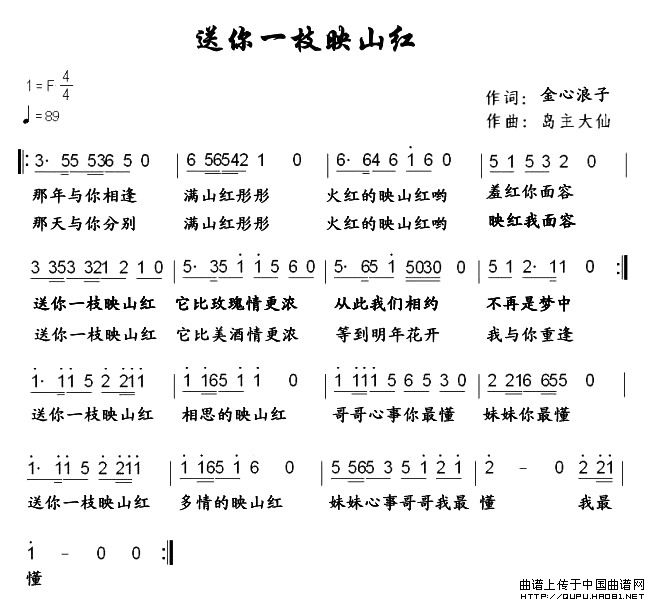 送你一枝映山红
1=F 4/4
♩=89
作词：金心浪子
作曲：岛主大仙
‖: 3· 55 536 5 0 | 6 56542 1 0 | 6· 64 6 1̇ 6 0 | 5 1 5 3 2 0 |
那年与你相逢 满山红彤彤 火红的映山红哟 羞红你面容
那天与你分别 满山红彤彤 火红的映山红哟 映红我面容
3 353 321 2 1 0 | 5· 35 1̇ 1̇ 5 6 0 | 5· 65 1̇ 5030 0 | 5 1 2· 1 0 :‖
送你一枝映山红 它比玫瑰情更浓 从此我们相约 不再是梦中
送你一枝映山红 它比美酒情更浓 等到明年花开 我与你重逢
1̇· 1̇1̇ 5 2̇ 2̇1̇1̇ | 1̇ 1̇65 1̇ 1̇ 0 | 1̇ 1̇1̇1̇ 5 6 5 3 0 | 2 216 655 0 |
送你一枝映山红 相思的映山红 哥哥心事你最懂 妹妹你最懂
1̇· 1̇1̇ 5 2̇ 2̇1̇1̇ | 1̇ 1̇65 1̇ 6 0 | 5 565 3 5 1̇ 2̇ 1̇ | 2̇ – 0 2̇ 2̇1̇ |
送你一枝映山红 多情的映山红 妹妹心事哥哥我最 懂 我最
1̇ – 0 0 :‖
懂
曲谱上传于中国曲谱网
HTTP://QUPU.HAO81.NET